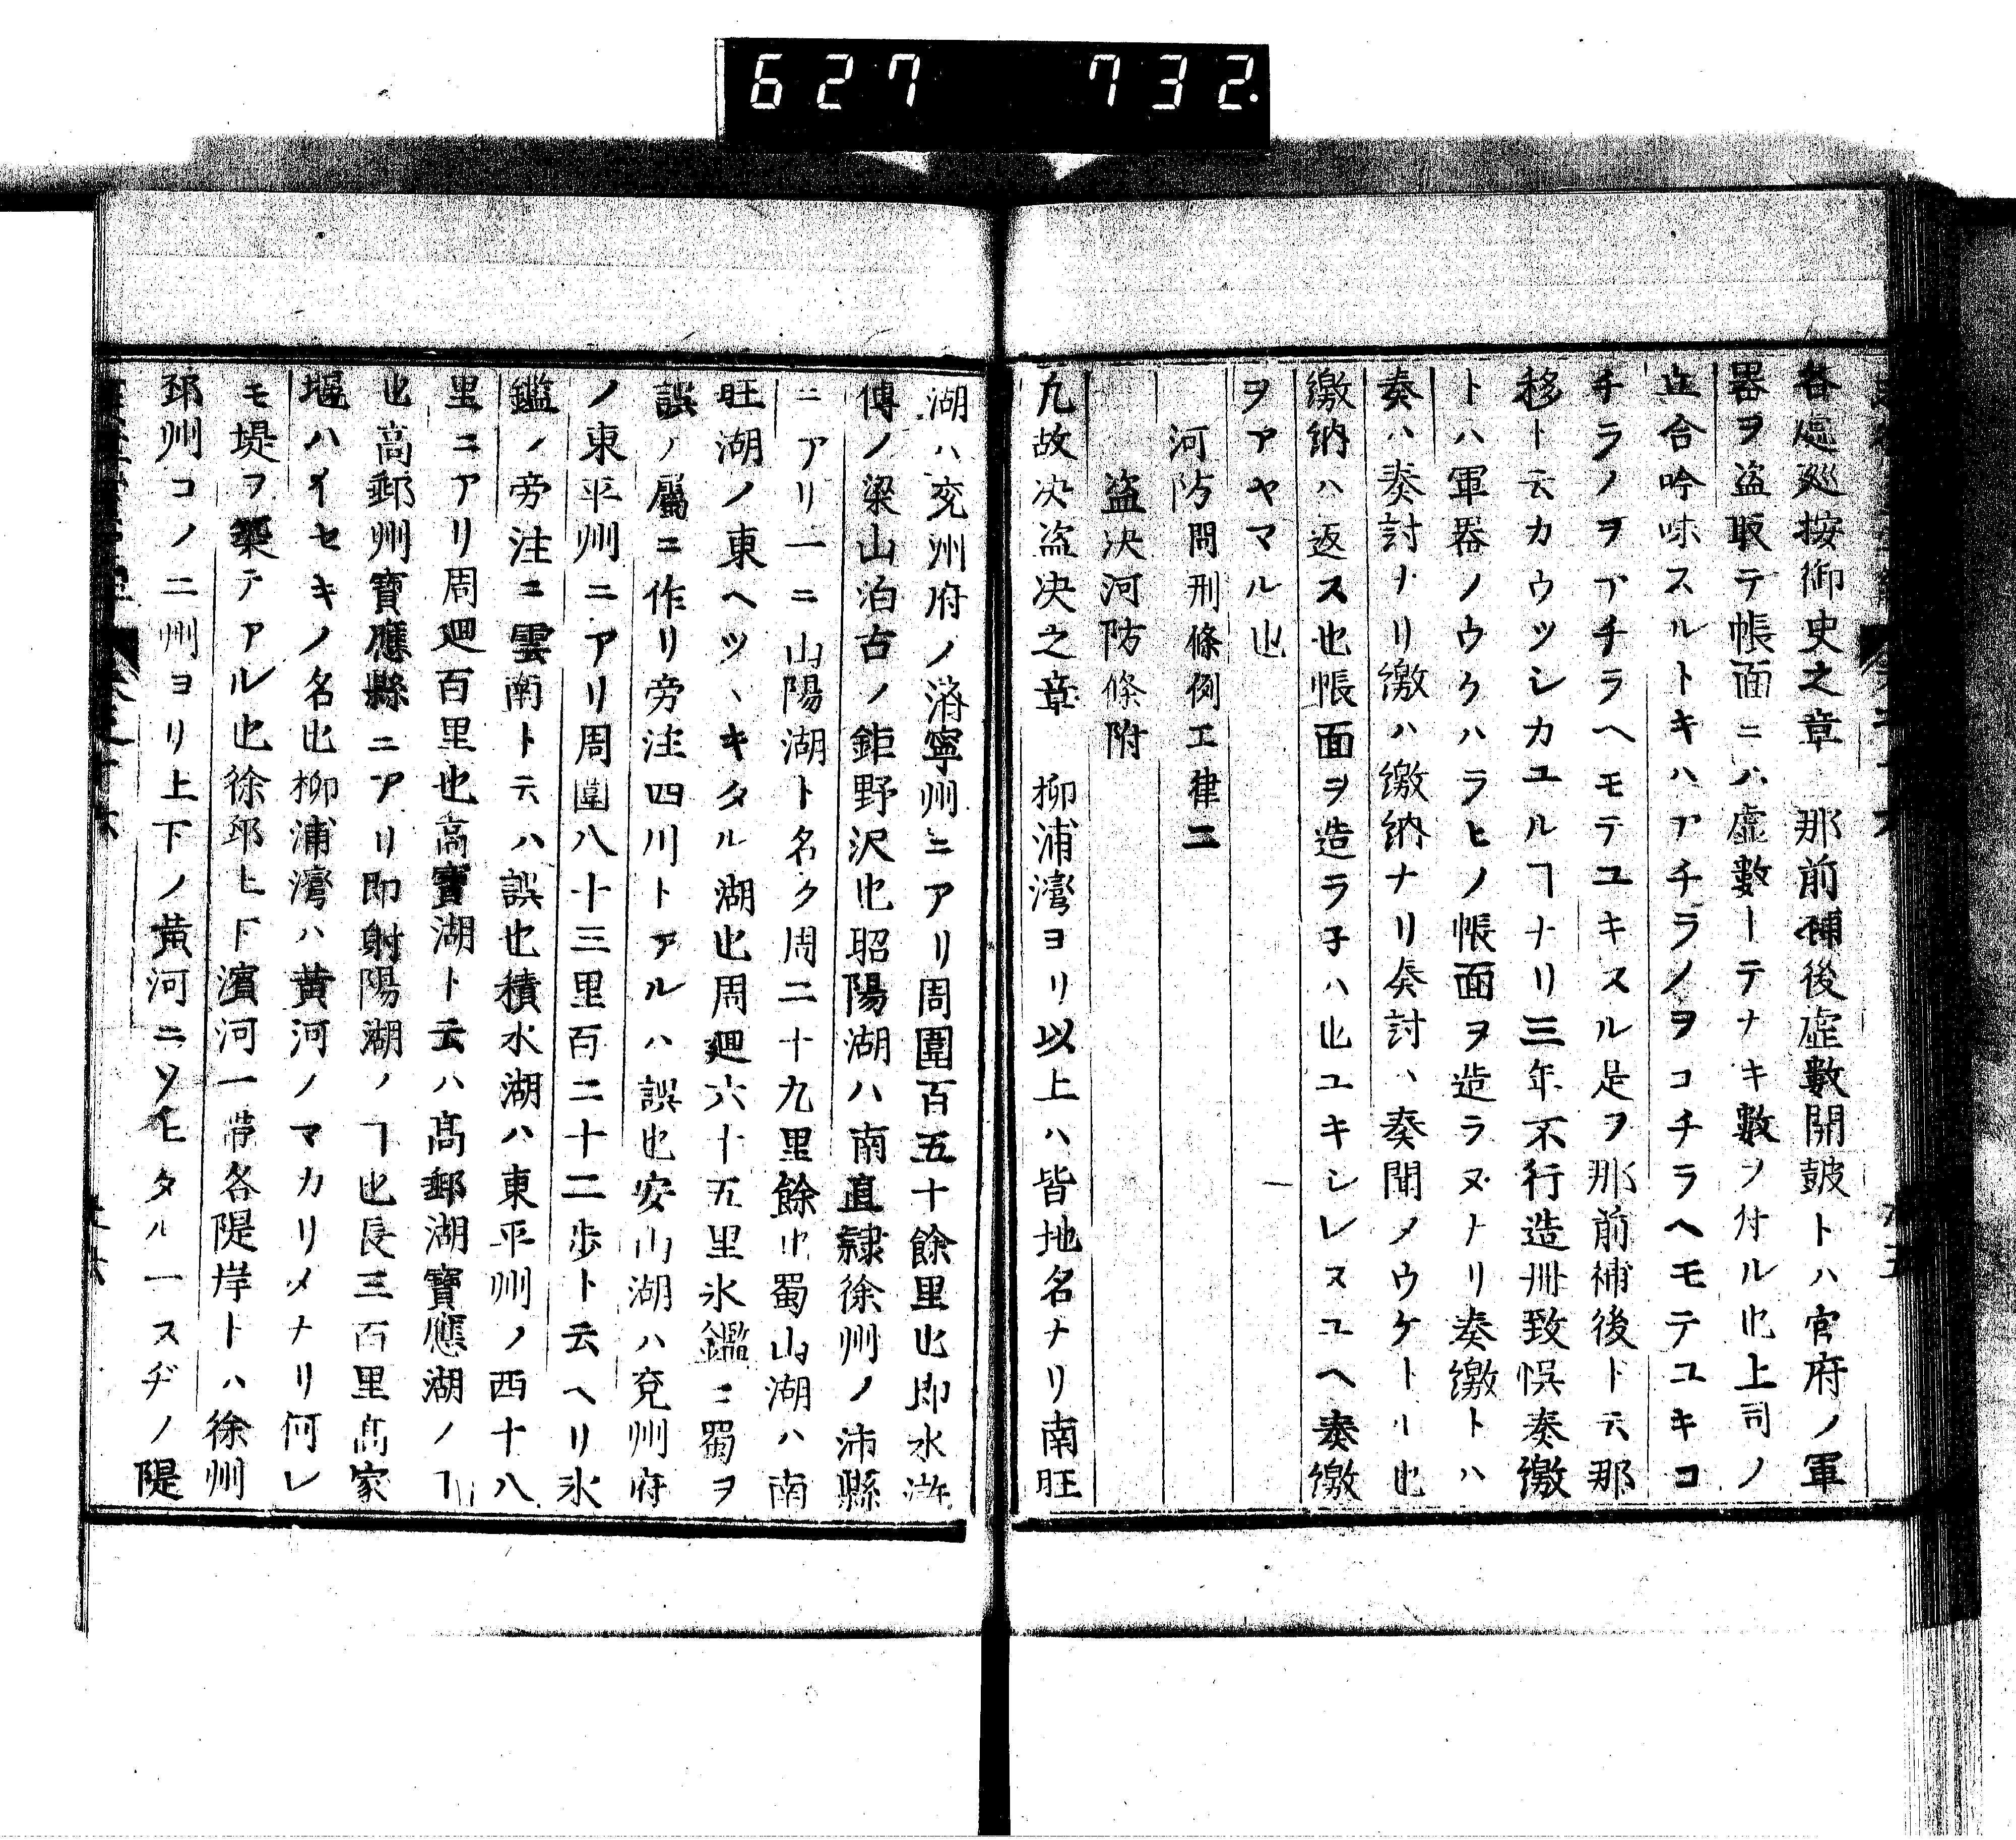 627 732
各處巡按御史之章 那前補後虛數開皷トハ官府ノ軍
器ヲ盜取テ帳面ニハ虛數ーテナキ數ヲ付ル也上司ノ
立合吟味スルトキハアチラノヲコチラヘモテユキコ
チラノヲアチラヘモテユキスル是ヲ那前補後ト云那
移ト云カウツシカユルヿナリ三年不行造冊致悞奏繳
トハ軍器ノウケハラヒノ帳面ヲ造ラヌナリ奏繳トハ
奏ハ奏討ナリ繳ハ繳納ナリ奏討ハ奏聞メウケトリ也
繳納ハ返ス也帳面ヲ造ラ子ハ也ユキシレヌユヘ奏繳
ヲアヤマル也
河防問刑條例工律二
盜决河防條附
九故决盜决之章 柳浦灣ヨリ以上ハ皆地名ナリ南旺
湖ハ兗州府ノ濟寧州ニアリ周圍百五十餘里也即水滸
傳ノ梁山泊古ノ鉅野沢也昭陽湖ハ南直隷徐州ノ沛縣
ニアリ一ニ山陽湖ト名ク周二十九里餘也蜀山湖ハ南
旺湖ノ東ヘツヽキタル湖也周廻六十五里氷鑑ニ蜀ヲ
誤ノ屬ニ作リ旁注四川トアルハ誤也安山湖ハ兗州府
ノ東平州ニアリ周圍八十三里百二十二歩ト云ヘリ氷
鑑ノ旁注ニ雲南ト云ハ誤也積水湖ハ東平州ノ西十八
里ニアリ周廻百里也高寶湖ト云ハ髙郵湖寶應湖ノヿ
也高郵州寶應縣ニアリ即射陽湖ノヿ也長三百里髙家
堰ハイセキノ名也柳浦灣ハ黄河ノマカリメナリ何レ
モ堤ヲ築テアル也徐邳上下濵河一帶各隄岸トハ徐州
邳州コノ二州ヨリ上下ノ黄河ニソヒタル一スヂノ隄